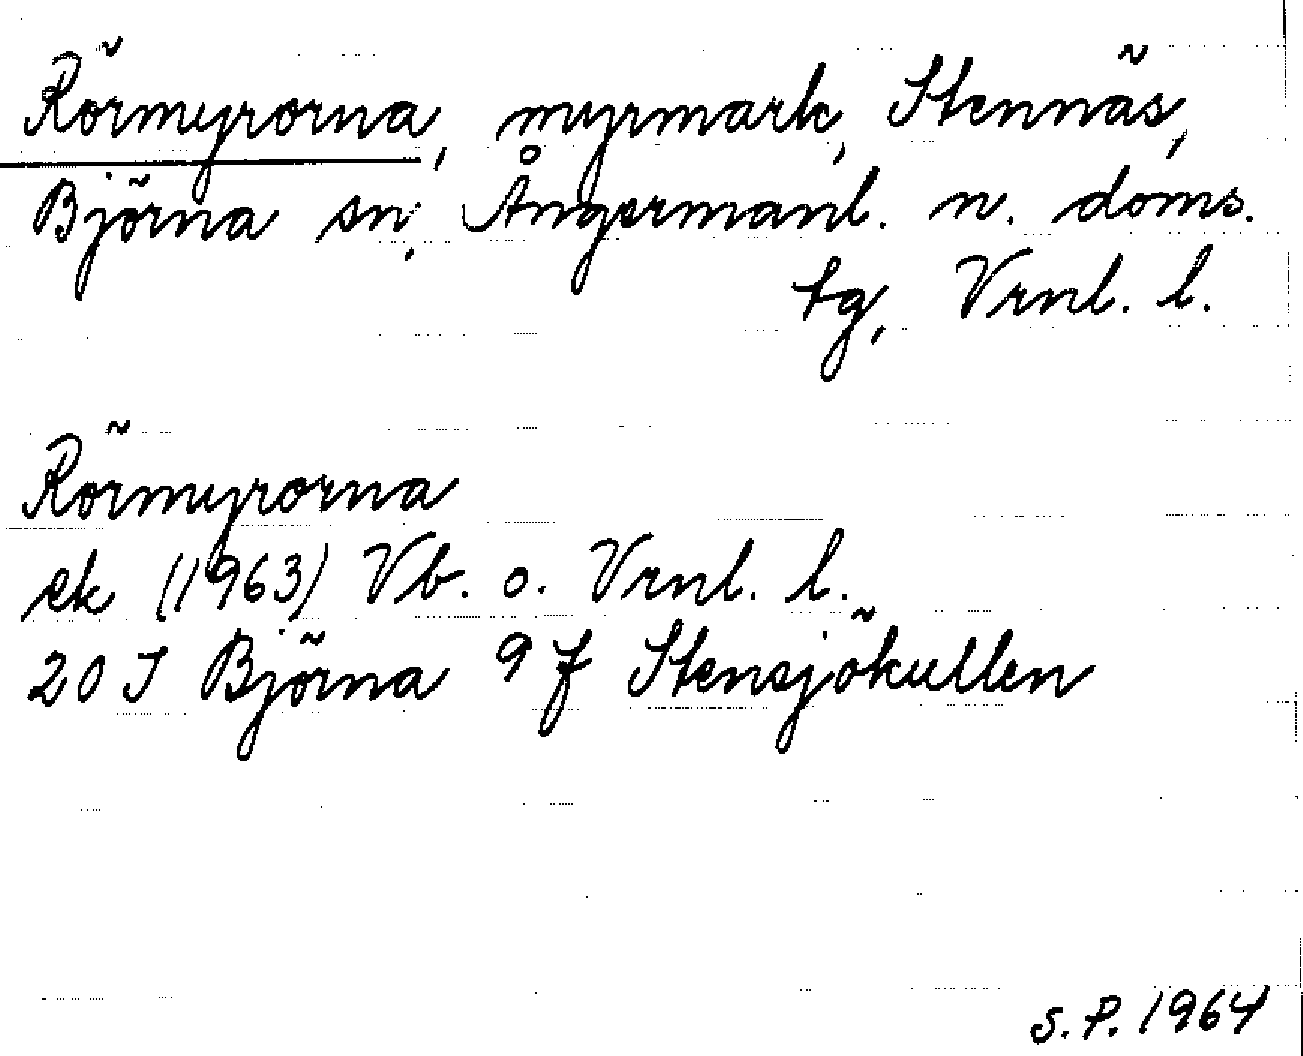 Rörmyrorna, myrmark, Stennäs,
Björna sn, Ångermanl. n. doms.
tg, Vrnl. l.
Rörmyrorna
ek (1963) Vb. o. Vrnl. l.
20 I Björna 9 f Stensjökullen
S. P. 1964